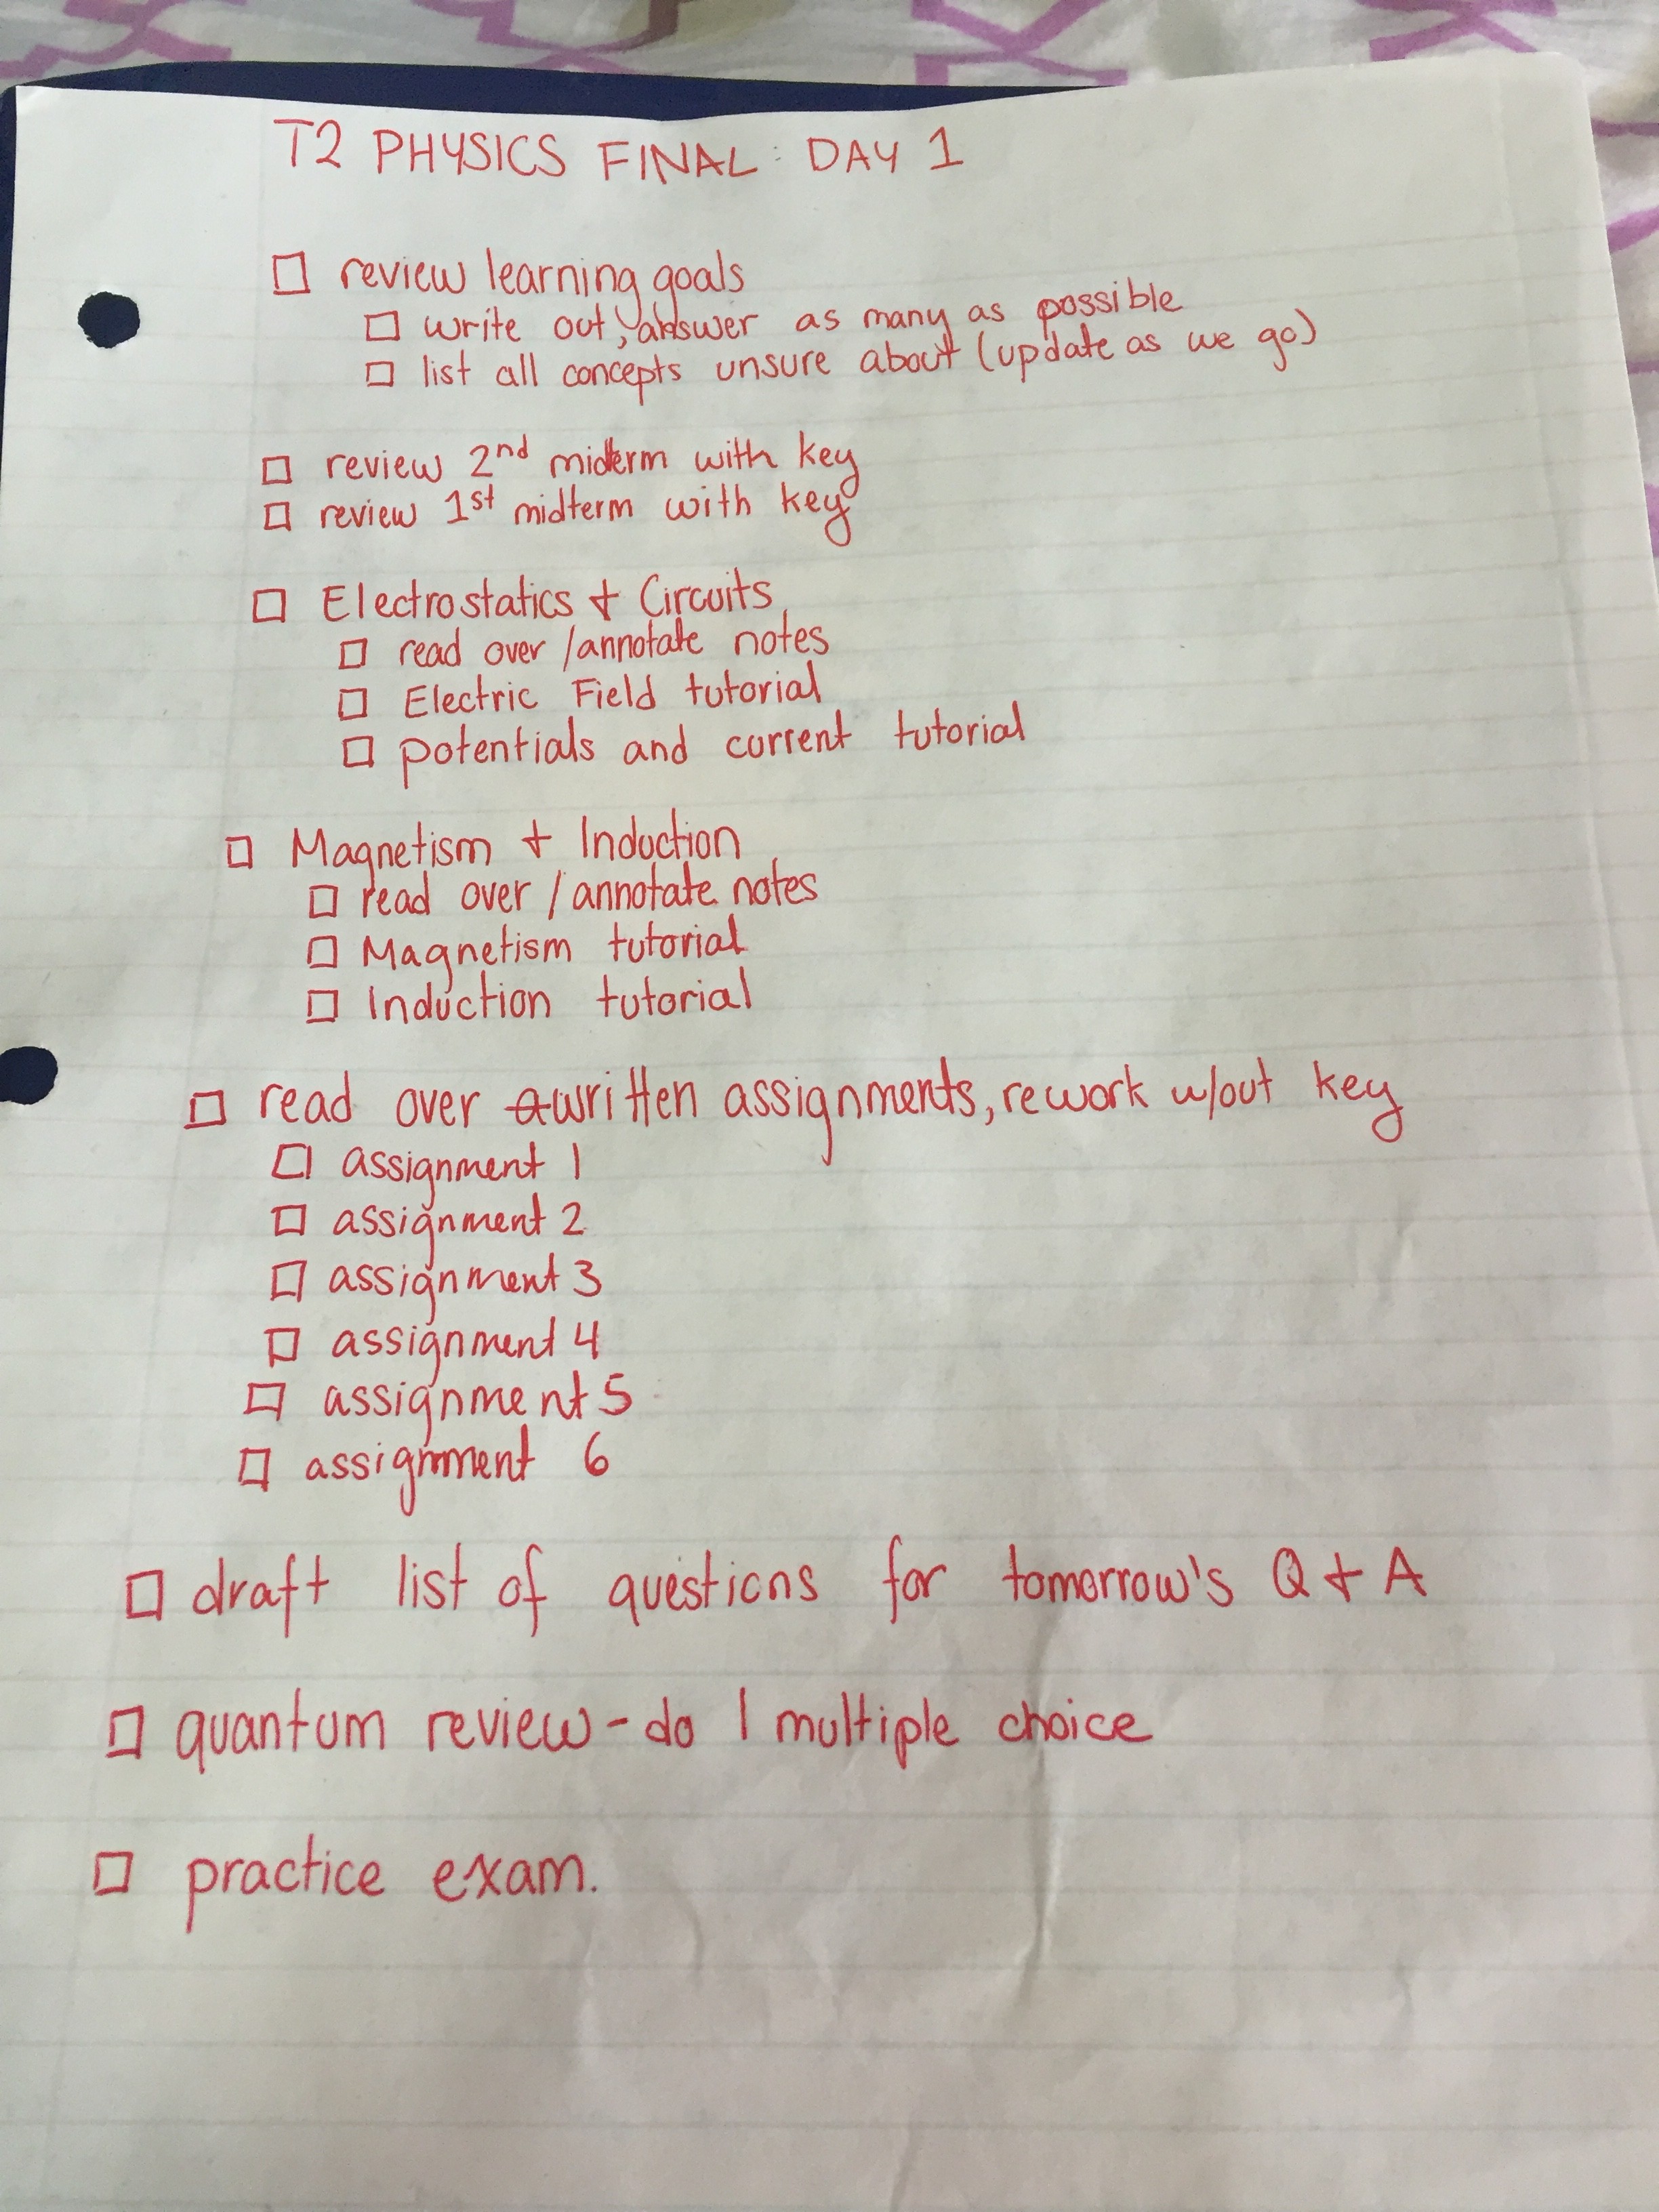 T2 PHYSICS FINAL: DAY 1
review learning goals
write out, answer as many as possible
list all concepts unsure about (update as we go)
review 2nd midterm with key
review 1st midterm with key
Electrostatics + Circuits
read over/annotate notes
Electric Field tutorial
potentials and current tutorial
Magnetism + Induction
read over/annotate notes
Magnetism tutorial
Induction tutorial
read over written assignments, rework w/out key
assignment 1
assignment 2
assignment 3
assignment 4
assignment 5
assignment 6
draft list of questions for tomorrow's Q + A
quantum review - do 1 multiple choice
practice exam.